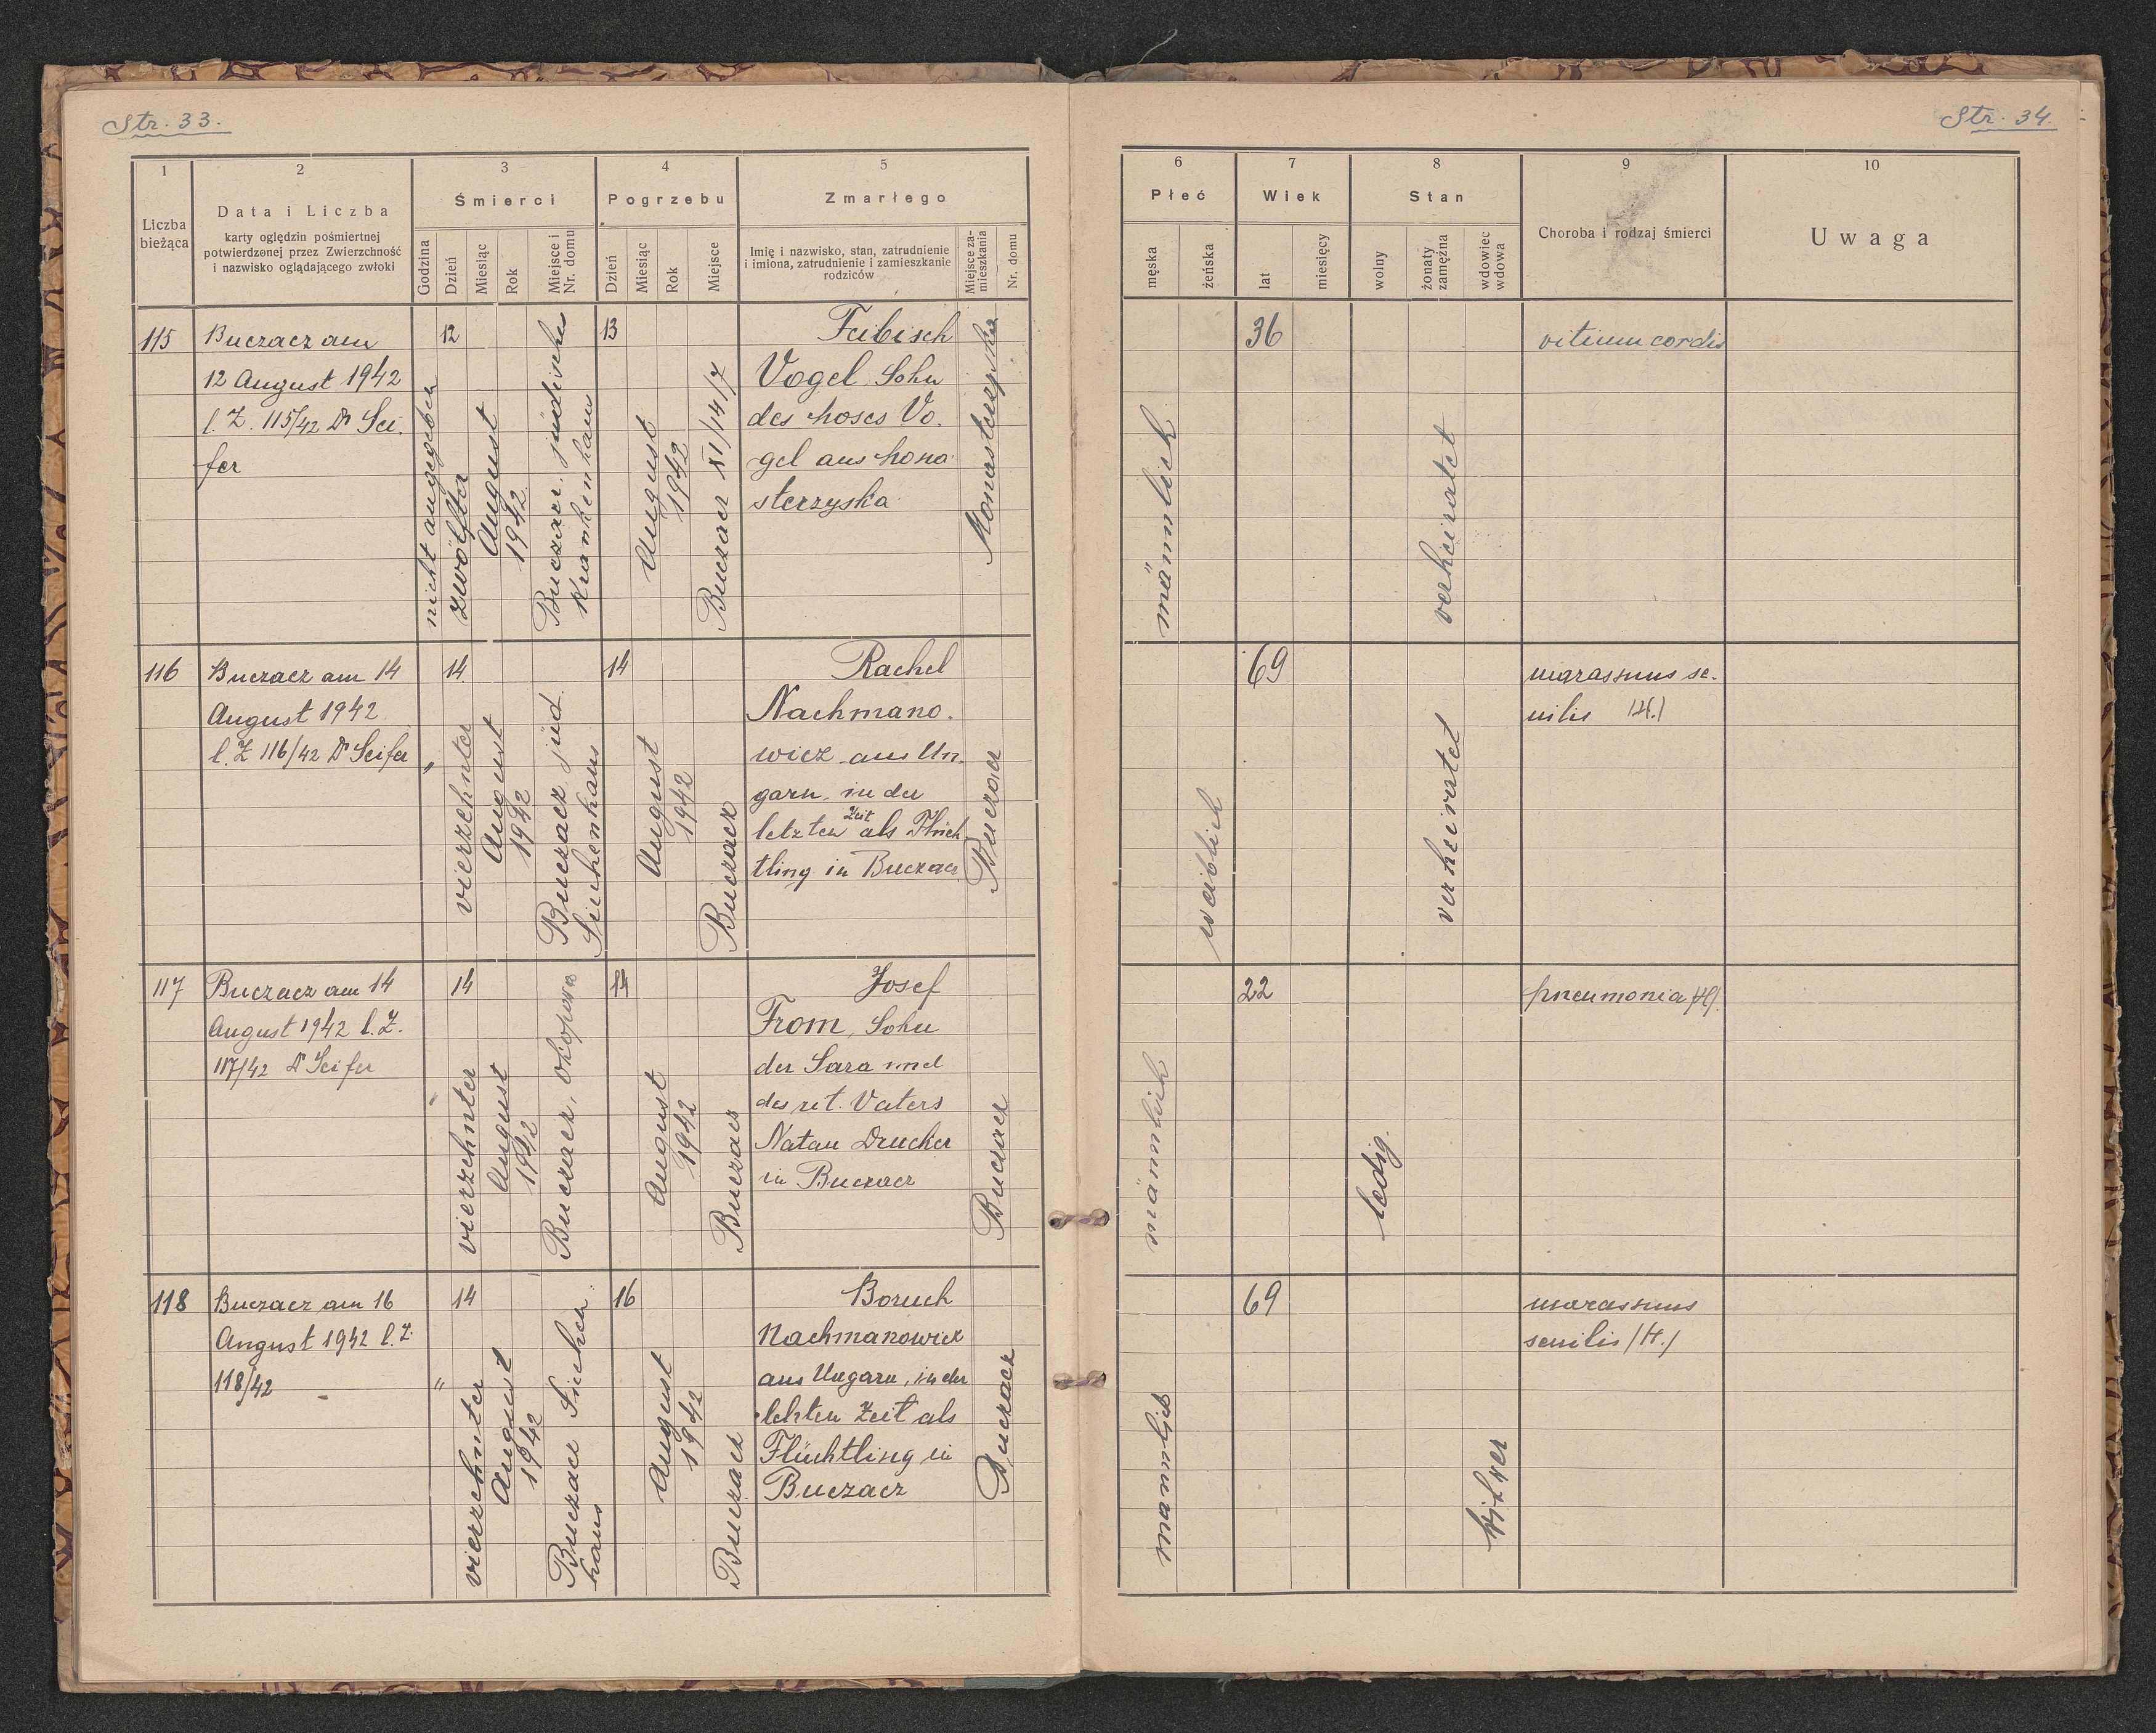 Str. 33.
1
2
3
4
5
Liczba bieżąca
Data i Liczba
karty oględzin pośmiertnej
potwierdzonej przez Zwierzchność
i nazwisko oglądającego zwłoki
Śmierci
Godzina
Dzień
Miesiąc
Rok
Miejsce i Nr. domu
Pogrzebu
Dzień
Miesiąc
Rok
Miejsce
Zmarłego
Imię i nazwisko, stan, zatrudnienie
i imiona, zatrudnienie i zamieszkanie
rodziców
Miejsce za-
mieszkania
Nr. domu
115
Buczacz am
12 August 1942
l. Z. 115/42 Dr Sei.
fer
nicht angegeben
12
zwölfter
August
1942
Buczacz. jüdisches
Krankenhaus
13
August
1942
Buczacz XI/14/7
Feibisch
Vogel Sohn
des Moses Vo.
gel aus Mona
sterzyska
Monasterzyska
116
Buczacz am 14
August 1942
l. Z 116/42 Dr Seifer
"
14
vierzehnter
August
1942
Buczacz jüd.
Siechenhaus
14
August
1942
Buczacz
Rachel
Nachmano.
wicz aus Un.
garn, in der
letzten Zeit als Flüch
tling in Buczacz
Buczacz
117
Buczacz am 14
August 1942 l. Z.
117/42 Dr Seifer
14
vierzehnter
August
1942
Buczacz, Okopowa
14
August
1942
Buczacz
Josef
From, Sohn
der Sara und
des rit. Vaters
Natan Drucker
in Buczacz
Buczacz
118
Buczacz am 16
August 1942 l. Z.
118/42
"
14
vierzehnter
August
1942
Buczacz Siechen
haus
16
August
1942
Buczacz
Boruch
Nachmanowicz
aus Ungarn, in der
letzten Zeit als
Flüchtling in
Buczacz
Buczacz
Str. 34.
6
7
8
9
10
Płeć
męska
żeńska
Wiek
lat
miesięcy
Stan
wolny
żonaty
zamężna
wdowiec
wdowa
Choroba i rodzaj śmierci
Uwaga
männlich
36
verheiratet
vitium cordis
weiblich
69
verheiratet
marassmus se.
nilis /H./
männlich
22
ledig.
pneumonia /H/.
männlich
69
Witwer
marassmus
senilis /H./